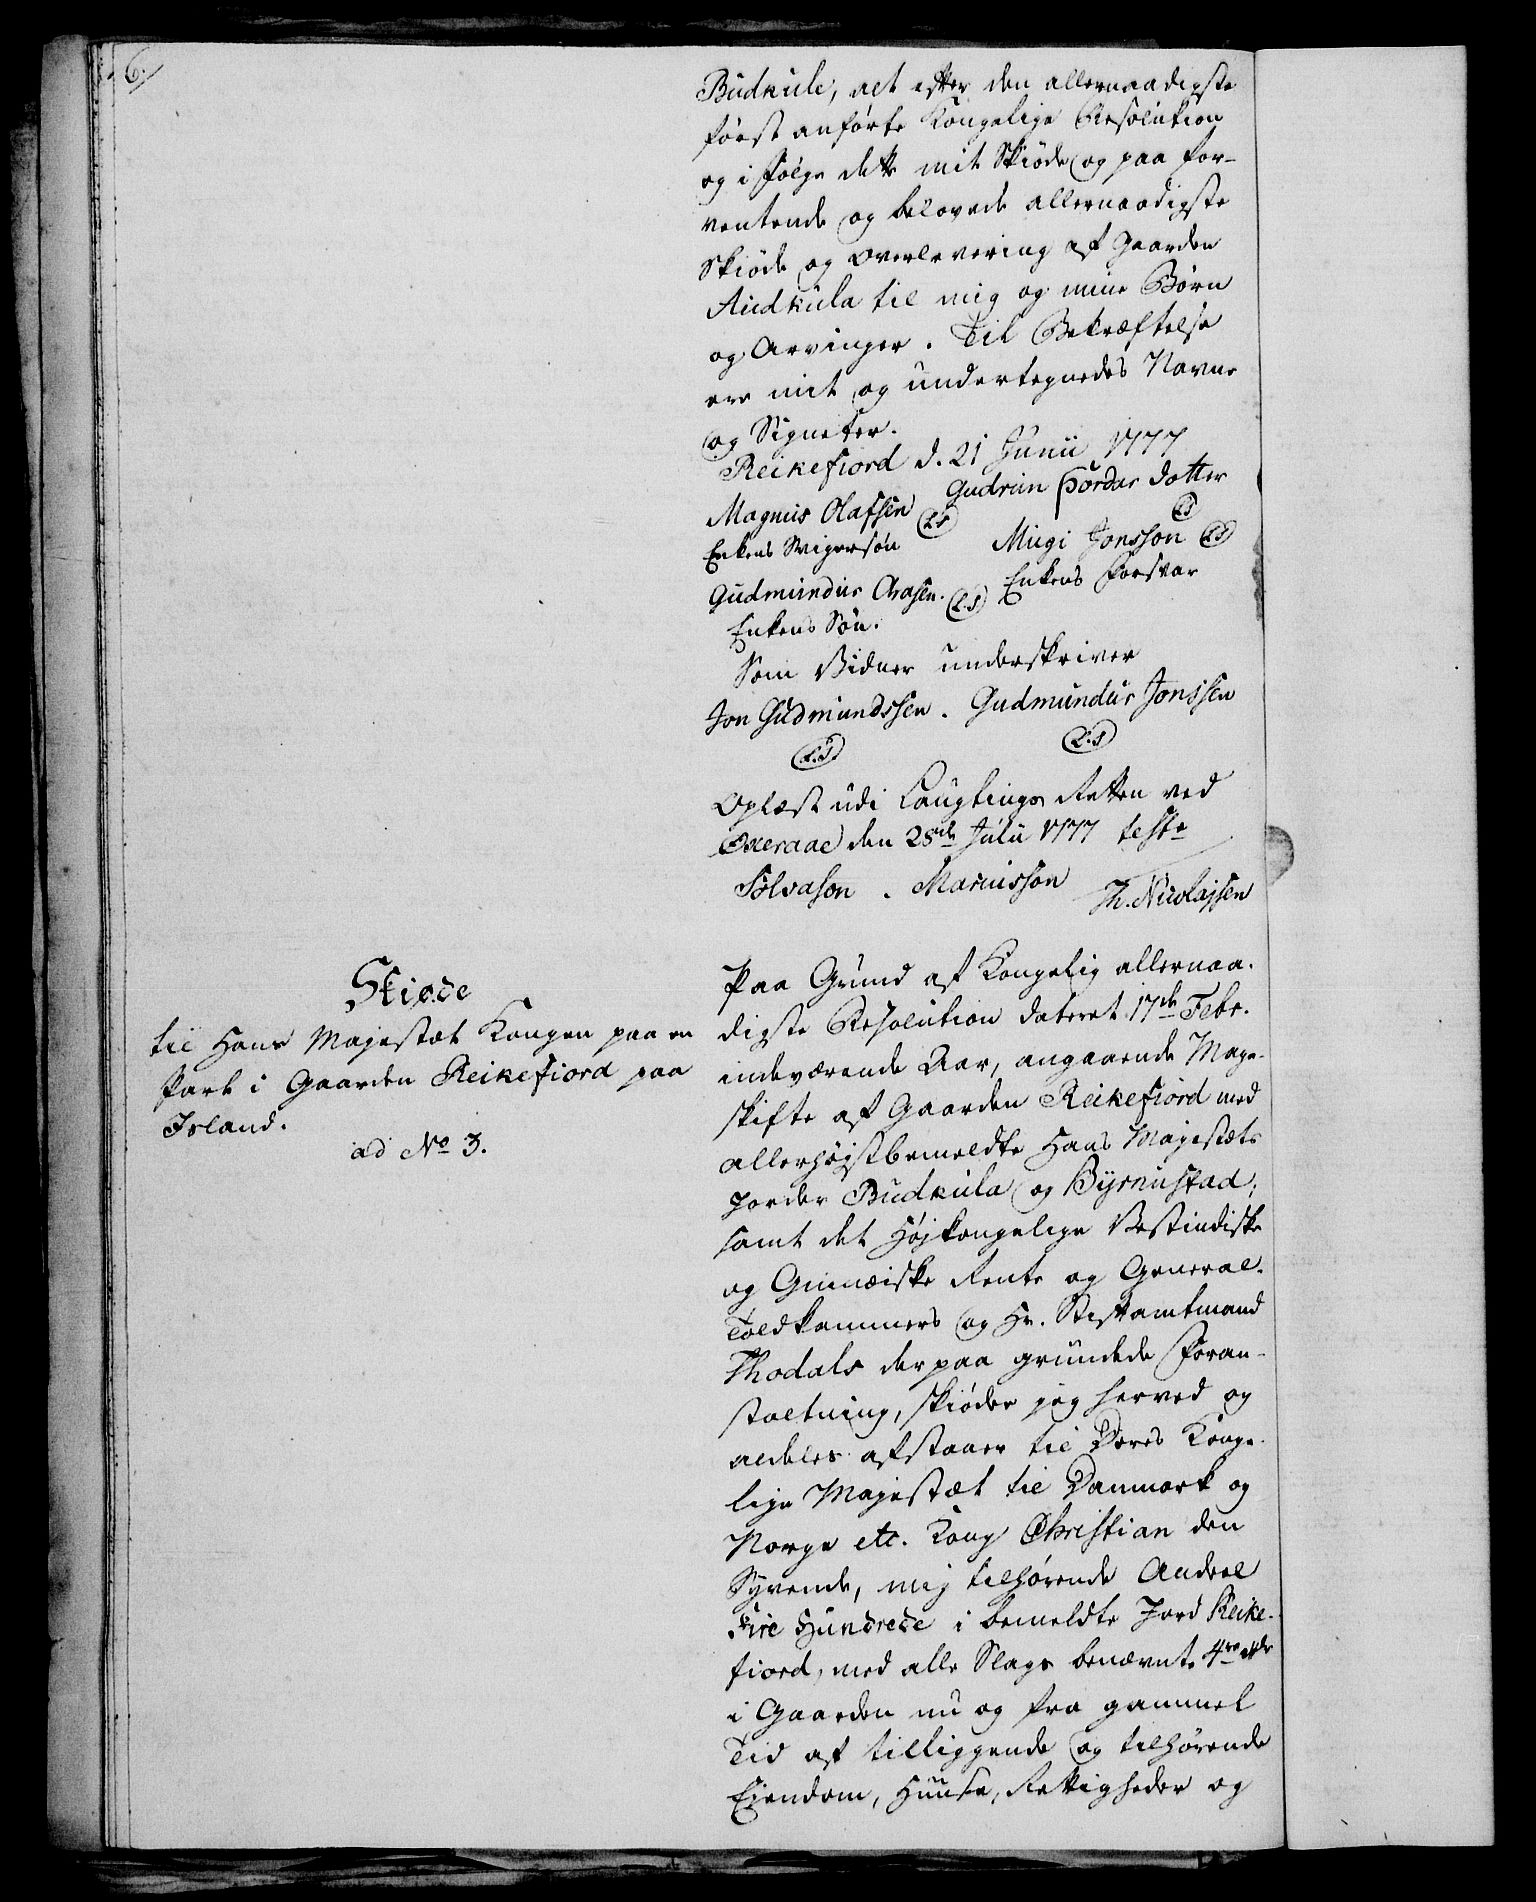 6.
Budkule, alt efter den allernaadigste
først anførte Kongelige Resolution
og i følge dette mit Skiøde og paa for-
ventende og belovede allernaadigste
Skiöde og Overlevering af Gaarden
Audkula til mig og mine Børn
og Arvinger. Til Bekræftelse
ere mit og undertegnedes Navne
og Signeter.
Reikefiord d. 21 Junii 1777
Gudrun Þordar dotter
Magnus Olafsen (LS) (LS)
Enkens Svigersøn Mugi Jonsson (LS)
Gudmundur Arasen. (L.S) Enkens Forsvar
Enkens Søn.
Som Vidner underskriver
Jon Gudmundssen. Gudmundur Jonssen
(L.S) (L.S)
Oplæst udi Laugtings Retten ved
Øxeraae den 28de Julii 1777 teste
Sölvason. Marcusson Th. Nicolajsen
Skiøde
til Hans Majestæt Kongen paa en
Part i Gaarden Reikefiord paa
Island.
ad No 3.
Paa Grund af Kongelig allernaa-
digste Resolution dateret 17de Febr.
indeværende Aar, angaaende Mage-
skifte af Gaarden Reikefiord med
allerhøjstbemeldte Hans Majestæts
Jorder Budkula og Byrnustad;
samt det Høikongelige Vestindiske
og Guineiske Rente og General-
Toldkammers og Hr. Stiftamtmand
Thodals derpaa grundede Foran-
staltning, skiöder jeg herved og
aldeles afstaaer til Deres Konge-
lige Majestæt til Danmark og
Norge etc. Kong Christian den
Syvende, mig tilhørende Andeel
Fire Hundrede i bemeldte Jord Reike-
fiord, med alle Slags benævnte 4re
i Gaarden nu og fra gammel
Tid af tilliggende og tilhørende
Ejendom, Huuse, Rettigheder og